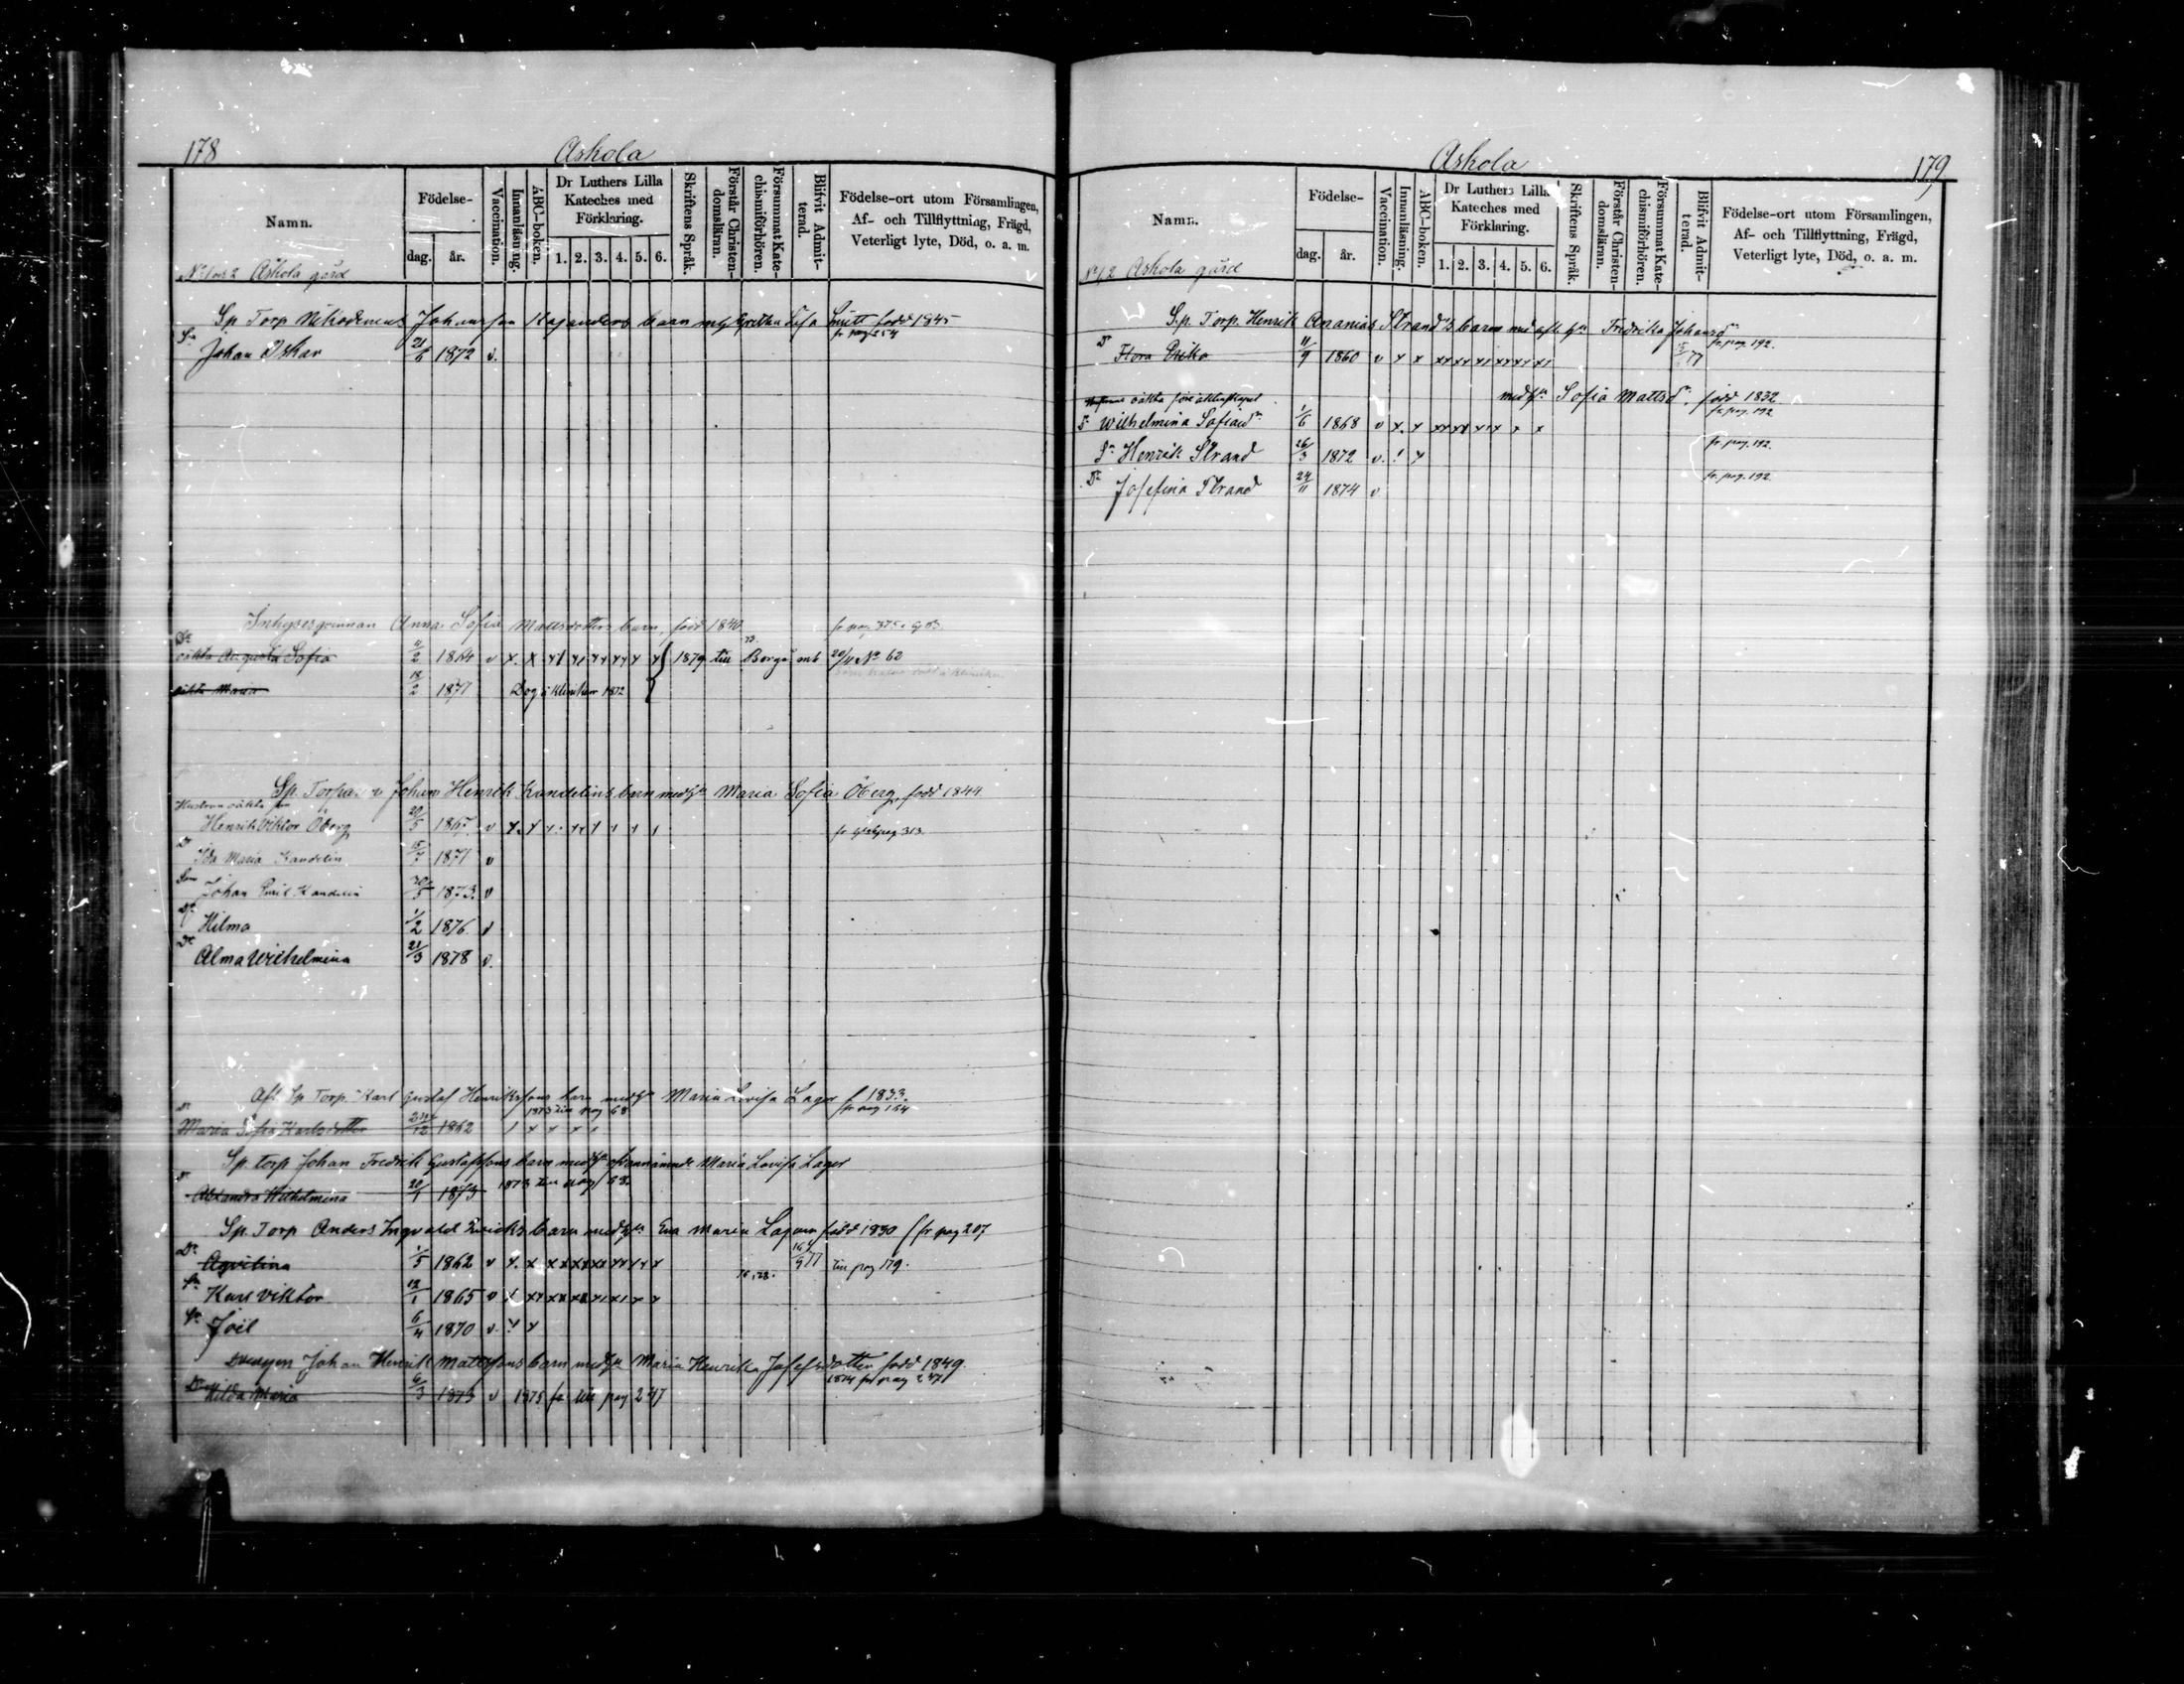 178
Askola
Namn.
Födelse-
dag.
år.
Vaccination.
Innanläsning.
ABC-boken.
Dr Luthers Lilla Kateches med Förklaring.
1. 2. 3. 4. 5. 6.
Skriftens Språk.
Förstår Christendomsläran.
Försummat Katechismiförhören.
Blifvit Admitterad.
Födelse-ort utom Församlingen,
Af- och Tillflyttning, Frägd,
Veterligt lyte, Död, o. a. m.
No 1 och 2 Askola gård
Sp Torp Nikodemus Johansson Kajanders barn m Gretha Lisa född 1845
fr pag 254
Sn Johan Oskar 21/6 1872 v.
Inhysesqvinnan Anna Sofia Mattsdotters barn, född 1840
Dr oäkta Augusta Sofia 11/2 1864 v 1879 till Borgå mb 20/4 No 62
oäkta Maria 18/2 1871 Dog å kliniken 1872
Sp. Torparen Johan Henrik Kandelins barn med hu Maria Sofia Öberg, född 1844
Hustruns oäkta son
Henrik Viktor Öberg 20/5 1867 v pag 313
Dr Ida Maria Kandelin 15/7 1871 v
Son Johan Emil Kandelin 30/5 1873. v
Dr Hilma 1/2 1876 v
Dr Alma Wilhelmina 21/3 1878 v.
Afl. Sp Torp. Karl Gustaf Henrikssons barn med hu Maria Lovisa Lager f 1833.
1873 till pag 68
fr pag 164
Dr Maria Sofia Karlsdotter 1862
Sp. torp Johan Fredrik Gustafssons barn med hu ofvannämnde Maria Lovisa Lager
Dr Alexandra Wilhelmina 20/1 1873 1873 till pag 68
Sp. Torp Anders Ingvald barn med hu Eva Maria Lagum född 1830 (fr pag 207
Dr Aqvilina 1/5 1862 v 77 till pag 179.
Sn Karl Viktor 12/1 1865 v
Sn Joel 6/4 1870 v.
Drängen Johan Henrik Mattssons barn med hu Maria Henrika Josefsdotter född 1849.
1874 fr pag 247
Dr Hilda Maria 6/3 1873 v 1875 till pag 247
Askola
179
Namn.
Födelse-
dag.
år.
Vaccination.
Innanläsning.
ABC-boken.
Dr Luthers Lilla Kateches med Förklaring.
1. 2. 3. 4. 5. 6.
Skriftens Språk.
Förstår Christendomsläran.
Försummat Katechismiförhören.
Blifvit Admitterad.
Födelse-ort utom Församlingen,
Af- och Tillflyttning, Frägd,
Veterligt lyte, Död, o. a. m.
No 1, 2 Askola gård
Sp. Torp. Henrik Ananias Strands barn med afl. hu Fredrika Johansdr
fr. pag. 192.
Dr Flora Erika 11/9 1860 v 77
med hu Sofia Mattsdr. född 1832
oäkta före äktenskapet fr pag. 192
Dr Wilhelmina Sofiaidr 1/6 1868 v
Sn Henrik Strand 26/3 1872 v. fr. pag. 192.
Dr Josefina Strand 24/11 1874 v fr. pag. 192